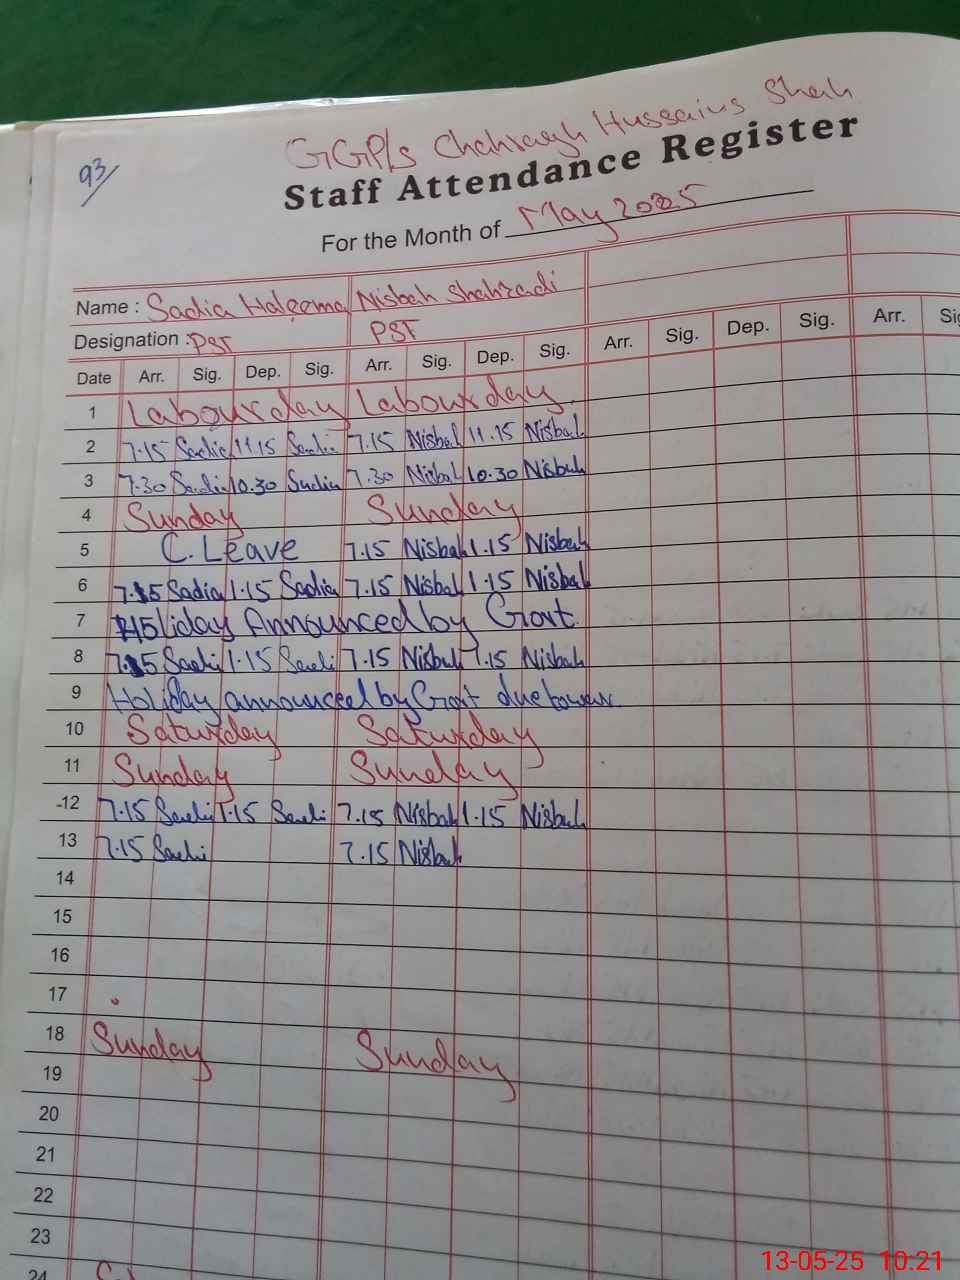 93/
GGP/s Chahragh Hussains Shah
Staff Attendance Register
For the Month of May 2025
Name : Sadia Haleema Nisbah Shahzadi
Designation : PST PST
Date Arr. Sig. Dep. Sig. Arr. Sig. Dep. Sig. Arr. Sig. Dep. Sig. Arr. Sig
1 Labour day Labour day
2 7.15 Sadia 11.15 Sadi 7.15 Nisbah 11.15 Nisbah
3 7.30 Sadia 10.30 Sadia 7.30 Nisbah 10.30 Nisbah
4 Sunday Sunday
5 C. Leave 7.15 Nisbah 1.15 Nisbah
6 7.15 Sadia 1.15 Sadia 7.15 Nisbah 1.15 Nisbah
7 Holiday Announced by Govt.
8 7.15 Sadi 1.15 Sadi 7.15 Nisbah 1.15 Nisbah
9 Holiday announced by Govt due to war.
10 Saturday Saturday
11 Sunday Sunday
12 7.15 Sadi 1.15 Sadi 7.15 Nisbah 1.15 Nisbah
13 7.15 Sadi 7.15 Nisbah
14
15
16
17
18 Sunday Sunday
19
20
21
22
23
24
13-05-25 10:21